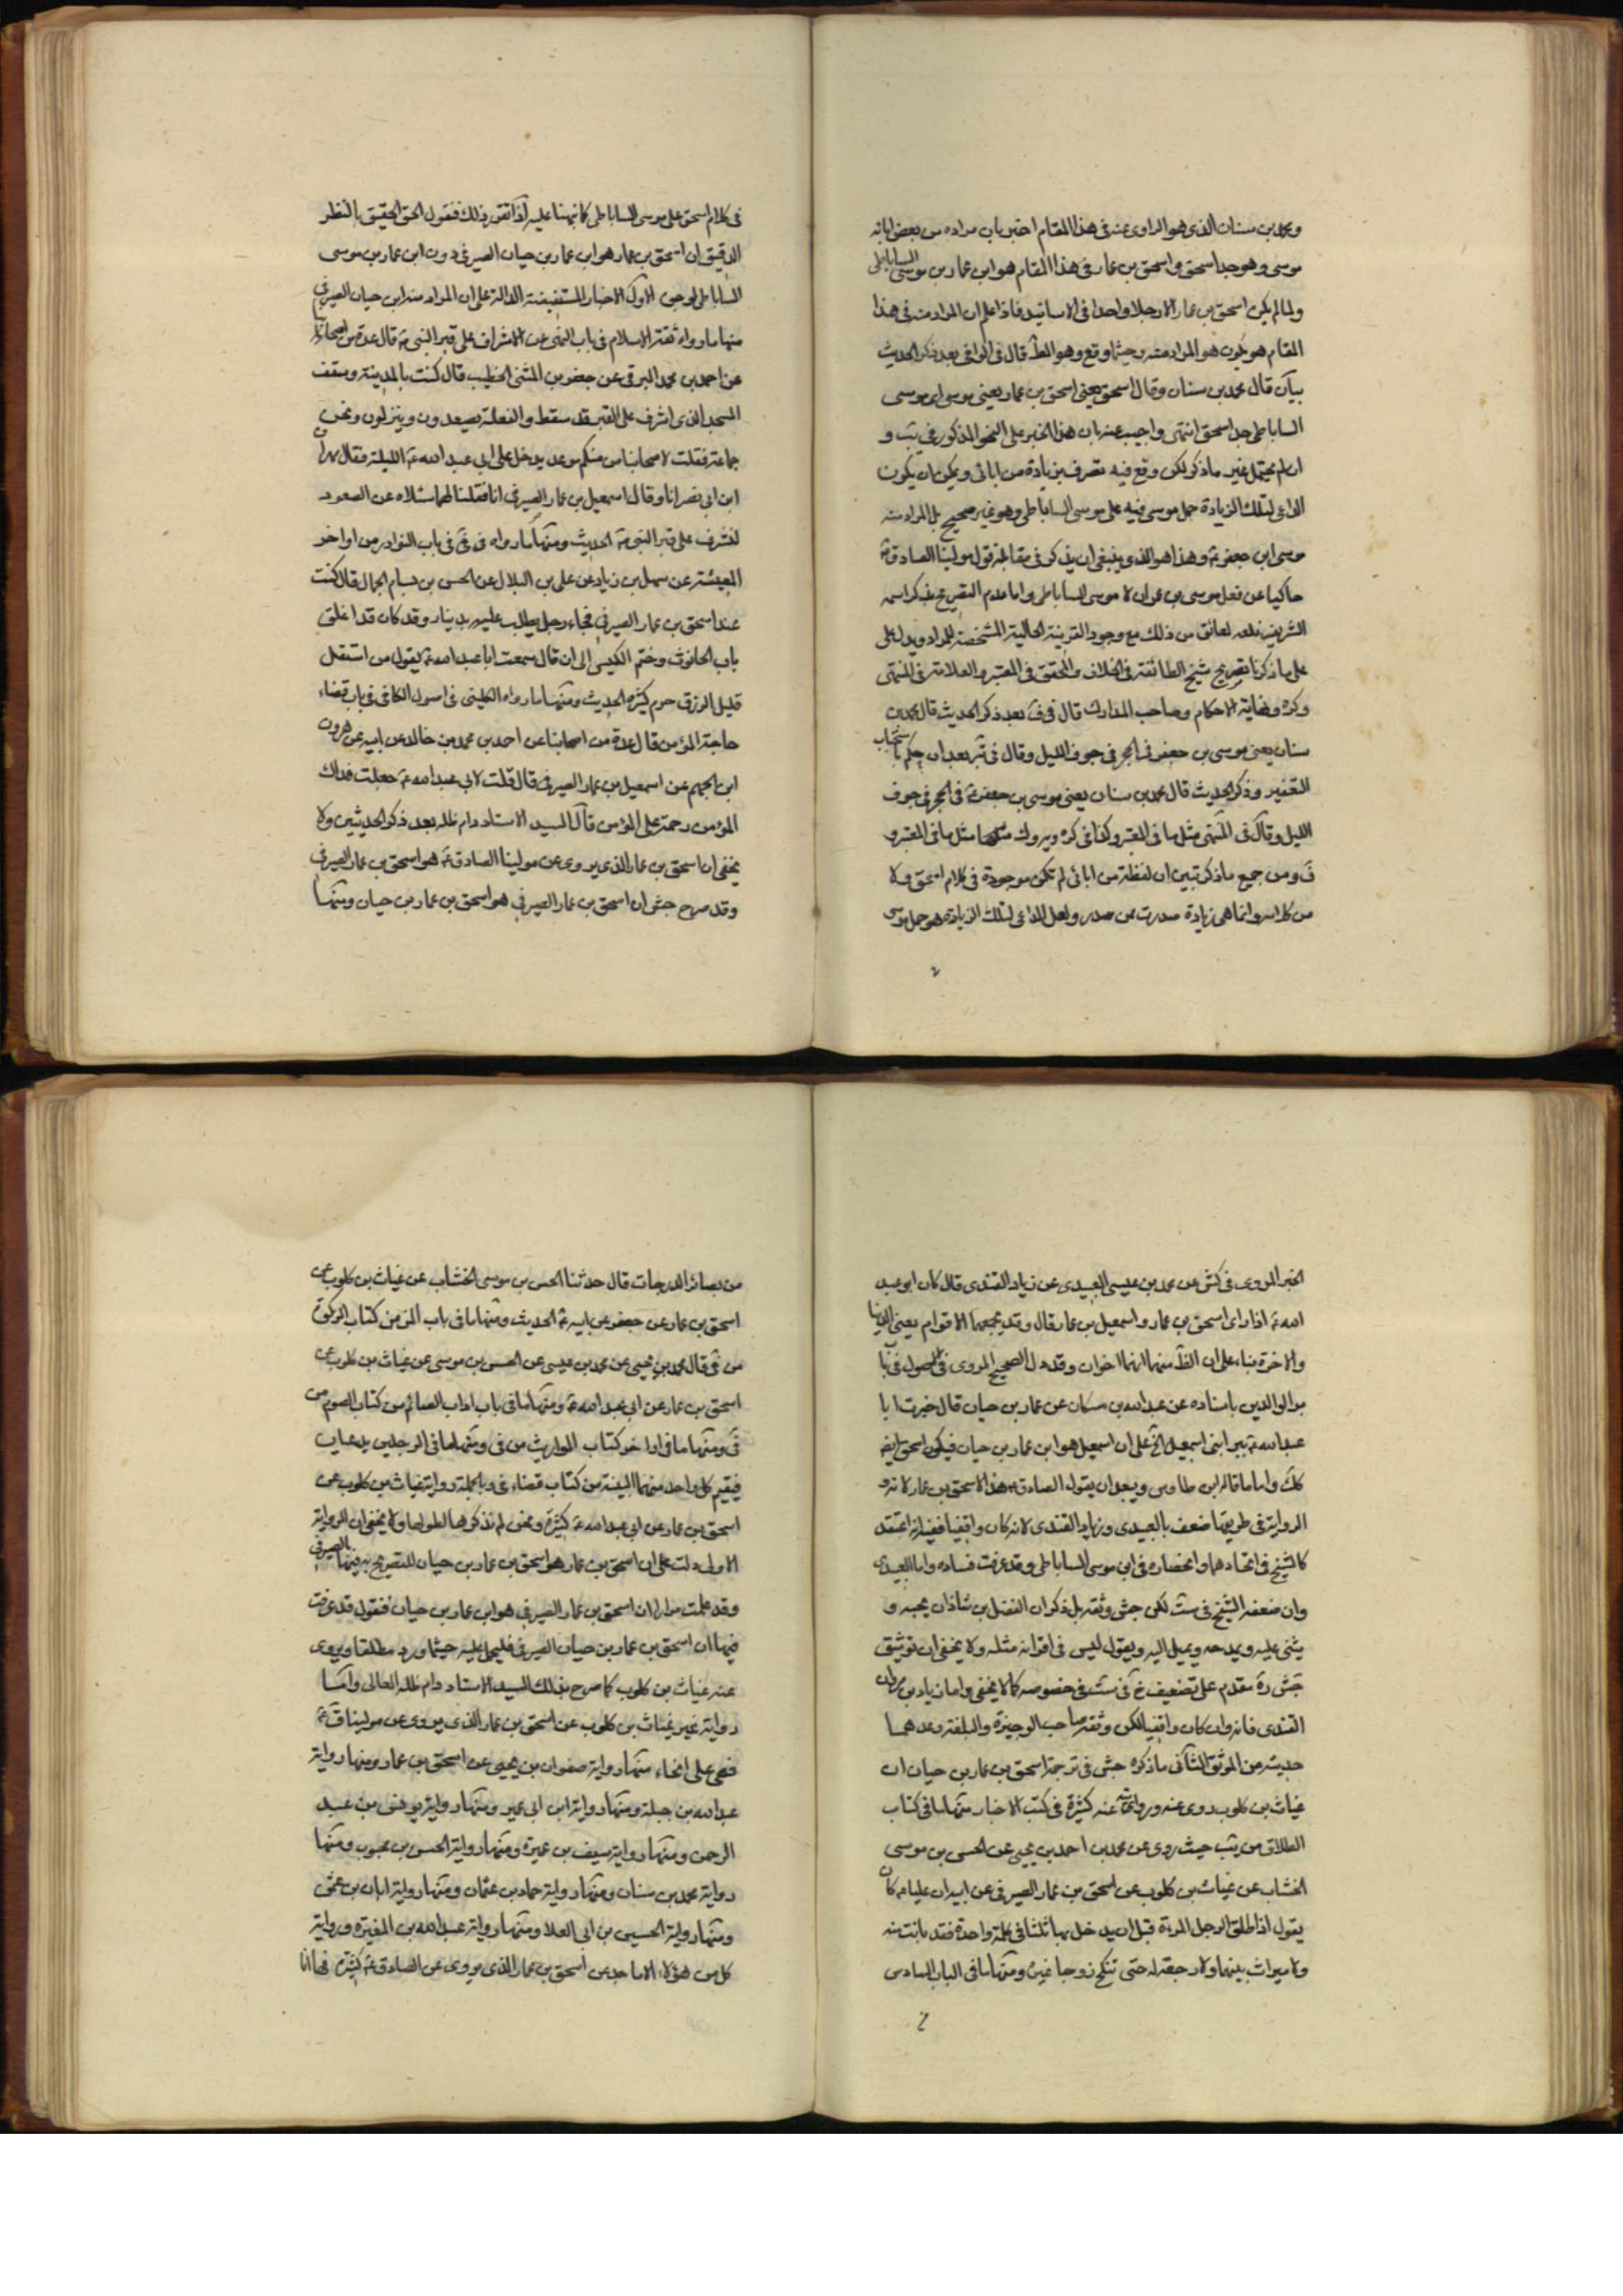 ومحمد بن سنان الذى هو الراوى عنه فى هذا المقام اخبر بان مراده من بعض ابائه
موسى وهو جد اسحق واسحق بن عمار فى هذا المقام هو ابن عمار بن موسى الساباطى
ولما لم يكن اسحق بن عمار الا رجلا واحدا فى الاسانيد فاذا علم ان المراد منه فى هذا
المقام هو يكون هو المراد منه وحيثما وقع وهو المط قال فى الوافى بعد ذكر الحديث
بيان قال محمد بن سنان وقال اسحق يعنى اسحق بن عمار يعنى موسى اى موسى
الساباطى جد اسحق انتهى واجيب عنه بان هذا الخبر على النحو المذكور فى يب و
ان لم يحتمل غير ما ذكر لكن وقع فيه تصرف بزيادة من ابائى ويمكن ان يكون
الداعى لتلك الزيادة حمل موسى فيه على موسى الساباطى وهو غير صحيح بل المراد منه
موسى ابن جعفر ع وهذا هو الذى ينبغى ان يذكر فى مقابلة قول مولينا الصادق ع
حاكيا عن فعل موسى بن عمران لا موسى الساباطى واما عدم التصريح بذكر اسمه
الشريف فلعله لعائق من ذلك مع وجود القرينة الحالية المشخصة للمراد ويدل على
على ما ذكرنا تصريح شيخ الطائفة فى الخلاف والمحقق فى المعتبر والعلامة فى المنتهى
وكره ونهاية الاحكام وصاحب المدارك قال فى ف بعد ذكر الحديث قال محمد بن
سنان يعنى موسى بن جعفر فى الحجر فى جوف الليل وقال فى تبر بعد ان حكم باستحباب
التعفير وذكر الحديث قال محمد بن سنان يعنى موسى بن جعفر ع فى الحجر فى جوف
الليل وقال فى المنتهى مثل ما فى المعتبر وكذا فى كره ويروك مثلها مثل ما فى المعتبر و
ف ومن جميع ما ذكر تبين ان لفظة من ابائى لم تكن موجودة فى كلام اسحق ولا
من كلامه وانما هى زيادة صدرت ممن صدر ولعل الداعى لتلك الزيادة هو حمل موسى
فى كلام اسحق على موسى الساباطى كما نبهنا عليه اذا تقرر ذلك فنقول الحق الحقيق بالنظر
الدقيق ان اسحق بن عمار هو ابن عمار بن حيان الصيرفى دون ابن عمار بن موسى
الساباطى لوجوه الاول الاخبار المستفيضة الدالة على ان المراد منه ابن حيان الصيرفى
منها ما رواه ثقة الاسلام فى باب النهى عن الاشراف على قبر النبى ص قال عدة من اصحابنا
عن احمد بن محمد البرقى عن جعفر بن المثنى الخطيب قال كنت بالمدينة وسقف
المسجد الذى اشرف على القبر قد سقط والفعلة يصعدون وينزلون ونحن
جماعة فقلت لاصحابنا من منكم موعد يدخل على ابى عبد الله ع الليلة فقال مهران
ابن ابى نصر انا وقال اسمعيل بن عمار الصيرفى انا فقلنا لهما سلاه عن الصعود
لنشرف على قبر النبى ص الحديث ومنها ما رواه فى فى ايضا فى باب النوادر من اواخر
المعيشة عن سهل بن زياد عن على بن البلال عن الحسن بن بسام الجمال قال كنت
عند اسحق بن عمار الصيرفى فجاء رجل يطلب غلة بدينار وقد كان قد اغلق
باب الحانوت وختم الكيس الى ان قال سمعت ابا عبد الله ع يقول من استقل
قليل الرزق حرم كثيره الحديث ومنها ما رواه الكلينى فى اصول الكافى فى باب قضاء
حاجة المؤمن قال عدة من اصحابنا عن احمد بن محمد بن خالد عن ابيه عن هرون
ابن الجهم عن اسمعيل بن عمار الصيرفى قال قلت لابى عبد الله ع جعلت فداك
المؤمن رحمة على المؤمن قال السيد الاستاد دام ظله بعد ذكر الحديثين ولا
يخفى ان اسحق بن عمار الذى يروى عن مولينا الصادق ع هو اسحق بن عمار الصيرفى
وقد صرح جش ان اسحق بن عمار الصيرفى هو اسحق بن عمار بن حيان ومنها
الخبر المروى فى كش عن محمد بن عيسى العبيدى عن زياد القندى قال كان ابو عبد
الله ع اذا راى اسحق بن عمار واسمعيل بن عمار قال وقد يجمعهما الاقوام يعنى الدنيا
والاخرة بناء على ان الظ منهما انهما اخوان وقد دل الصحيح المروى فى اصول فى باب
بر الوالدين باسناده عن عبد الله بن مسكان عن عمار بن حيان قال خبرت ابا
عبد الله ع ببر ابنى اسمعيل الخ على ان اسمعيل هو ابن عمار بن حيان فيكون اسحق ايضا
كك واما ما قاله ابن طاوس ويبعد ان يقول الصادق ع هذا لاسحق بن عمار لانه و
الرواية فى طريقها ضعف بالعبيدى وزياد القندى لانه كان واقفيا ففيه انه اعتقد
كالشيخ فى اتحادهما وانحصاره فى ابن موسى الساباطى وقد عرفت فساده واما العبيدى
وان ضعفه الشيخ فى ست لكن جش وثقه بل ذكر ان الفضل بن شاذان يحبه و
يثنى عليه ويمدحه ويميل اليه ويقول ليس فى اقرانه مثله ولا يخفى ان توثيق
جش ره مقدم على تضعيف خ فى ست فى خصوصه كما لا يخفى واما زياد بن مروان
القندى فانه وان كان واقفيا لكن وثقه صاحب الوجيزة والبلغة وعدهما
حديثه من الموثق الثانى ما ذكره جش فى ترجمة اسحق بن عمار بن حيان ان
غياث بن كلوب روى عنه ورواياته عنه كثيرة فى كتب الاخبار منها ما فى كتاب
الطلاق من يب حيث روى عن محمد بن احمد بن يحيى عن الحسن بن موسى
الخشاب عن غياث بن كلوب عن اسحق بن عمار الصيرفى عن ابيه ان عليا ع كان
يقول اذا طلق الرجل المراة قبل ان يدخل بها ثلثا فى كلمة واحدة فقد بانت منه
ولا ميراث بينهما ولا رجعة له حتى تنكح زوجا غيره ومنها ما فى الباب السادس
من بصائر الدرجات قال حدثنا الحسن بن موسى الخشاب عن غياث بن كلوب عن
اسحق بن عمار عن جعفر عن ابيه ع الحديث ومنها ما فى باب المن من كتاب الزكوة
من فى قال محمد بن يحيى عن محمد بن عيسى عن الحسن بن موسى عن غياث بن كلوب عن
اسحق بن عمار عن ابى عبد الله ع ومنها ما فى باب اداب الصائم من كتاب الصوم من
فى ومنها ما فى اواخر كتاب المواريث من فى ومنها ما فى الرجلين يدعيان
فيقيم كل واحد منهما البينة من كتاب قضاء فى وبالجملة رواية غياث بن كلوب عن
اسحق بن عمار عن ابى عبد الله ع كثيرة ونحن لم نذكرها لطولها ولا يخفى ان الرواية
الاولى دلت على ان اسحق بن عمار هو اسحق بن عمار بن حيان للتصريح به فيها بالصيرفى
وقد علمت مرارا ان اسحق بن عمار الصيرفى هو ابن عمار بن حيان فنقول قد عرفت
فيها ان اسحق بن عمار بن حيان الصيرفى فليحمل عليه حيثما ورد مطلقا ويروى
عنه غياث بن كلوب كما صرح بذلك السيد الاستاد دام ظله العالى واما
رواية غير غياث بن كلوب عن اسحق بن عمار الذى يروى عن مولينا ق ع
فهى على انحاء منها رواية صفوان بن يحيى عن اسحق بن عمار ومنها رواية
عبد الله بن جبلة ومنها رواية ابن ابى عمير ومنها رواية يونس بن عبد
الرحمن ومنها رواية سيف بن عميرة ومنها رواية الحسن بن محبوب ومنها
رواية محمد بن سنان ومنها رواية حماد بن عثمان ومنها رواية ابان بن عثمن
ومنها رواية الحسين بن ابى العلا ومنها رواية عبد الله بن المغيرة ورواية
كل من هؤلاء الاماجد عن اسحق بن عمار الذى يروى عن الصادق ع كثيرة فها انا